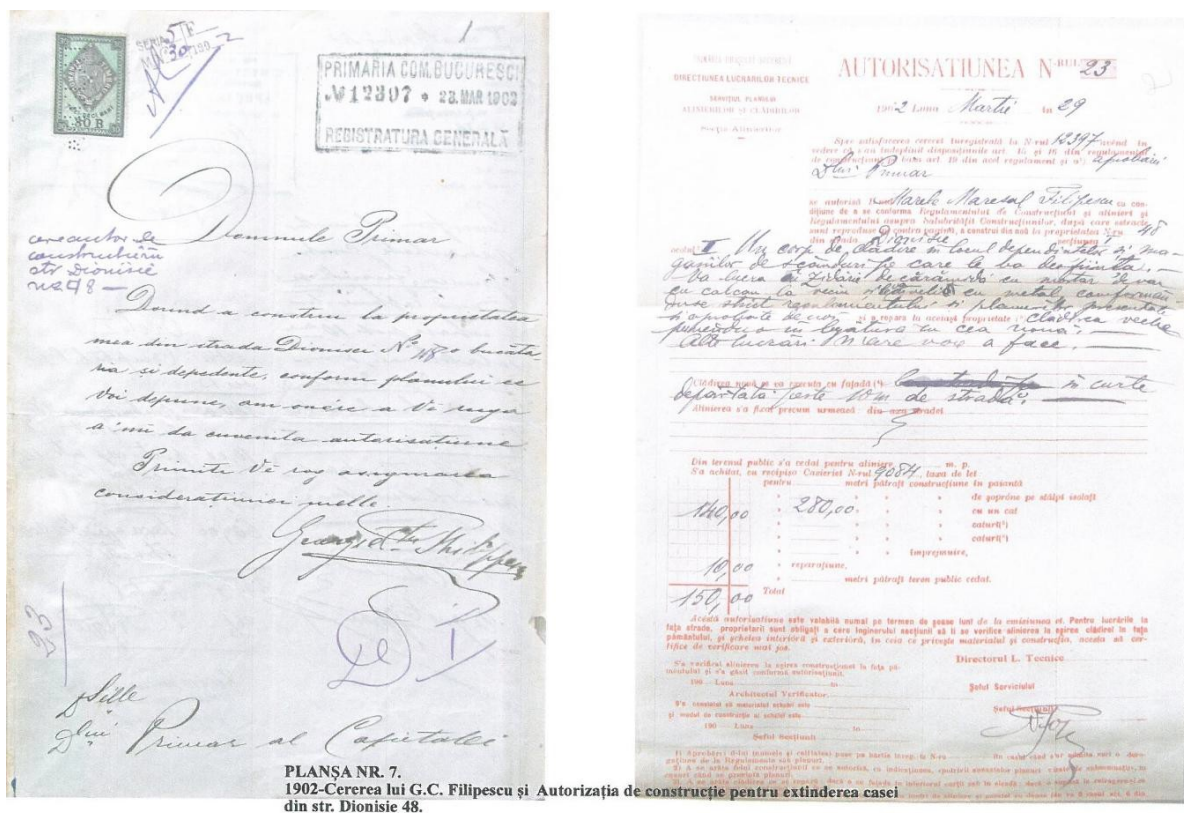 1
SERIA 5 F
30 B
PRIMARIA COM. BUCURESCI
№ 12397 * 23. MAR 1902
REGISTRATURA GENERALĂ
Domnule Primar
cere autor. de
construcțiuni
str Dionisie
No 48 —
Dorind a construi la proprietatea
mea din strada Dionisie No 48 o bucătă-
ria si depedente, conform planului ce
voi depune, am onóre a Vĕ ruga
a 'mi da cuvenita autorisațiune
Primiti Vĕ rog asigurarea
considerațiunei melle
George C. Philippescu
23
D Sille
D lui Primar al Capitalei
DIRECȚIUNEA LUCRARILOR TECNICE
SERVIȚIUL PLANULUI
ALINIERILOR ȘI CLĂDIRILOR
Secția Alinierilor
AUTORISAȚIUNEA N-RUL 23
1902 Luna Martie în 29
Spre satisfacerea cererei înregistrată la N-rul 12397 avênd în
vedere că s'au îndeplinit disposițiunile art. 15 și 16 din regulamentul
de construcțiuni, în baza art. 19 din acel regulament și a aprobării
D lui Primar
se autorisă Marele Maresal Filipescu cu con-
dițiune de a se conforma Regulamentului de Construcțiuni și alinieri și
Regulamentului asupra Salubrității Construcțiunilor, după care estracte
sunt reproduse pe contra pagină, a construi din noŭ la proprietatea N-ru 48
din strada Dionisie secțiunea I
ocolul I Un corp de clădire în locul dependințelor și ma-
gaziilor de scânduri pe care le va desființa. —
Va lucra cu zidărie de cărămidă cu mortar de var
cu calcan la vecin și învelit cu metal, conformân-
du-se strict regulamentului si planurilor presentate
si aprobate de noi și a repara la aceiași proprietate: clădirea veche
punêndu-o în legătură cu cea nouă. —
Alte lucrări nu are voe a face. —
Clădirea nouă se va executa cu fațada (¹) în curte
depărtată peste 10 m de stradă. —
Alinierea s'a fixat precum urmează din axa stradei
Din terenul public s'a cedat pentru aliniere m. p.
S'a achitat, cu recipisa Casieriei N-rul 9084 taxa de lei
pentru metri pătrați construcțiune în paiantă
de șoprône pe stâlpi isolați
140,00 280,00 cu un cat
caturi(²)
caturi(²)
împrejmuire,
10,00 reparațiune,
metri pătrați teren public cedat.
150,00 Total
Acestă autorisațiune este valabilă numai pe termen de șease luni de la emisiunea eĭ. Pentru lucrările la
fața strade, proprietarii sunt obligați a cere inginerului secțiunii să li se verifice alinierea la eșirea clădirei la fața
pămêntului, și schelea interióră și exterióră, în ceia ce privește materialul și construcția, acesta să cer-
tifice de verificare mai jos.
S'a verificat alinierea la eșirea construcțiunei la fața pă-
mêntului și s'a găsit conformă autorisațiunii.
190 Luna în
Architectul Verificator
S'a constatat că materialul schelei este
și modul de construcție al schelei este
190 Luna în
Șeful Secțiunii
Directorul L. Tecnice
Șeful Serviciului
Șeful Secțiunii
PLANȘA NR. 7.
1902-Cererea lui G.C. Filipescu și Autorizația de construcție pentru extinderea casei
din str. Dionisie 48.